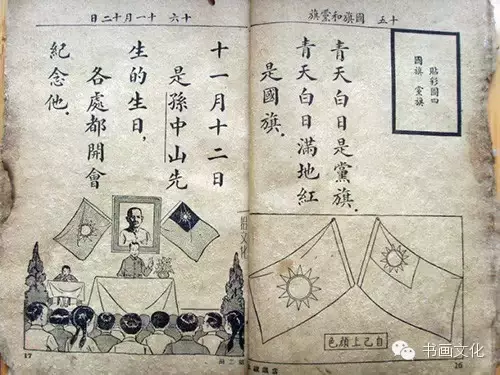 十五 國旗和黨旗
貼彩圖四
國旗 黨旗
青天白日是黨旗.
青天白日滿地紅
是國旗.
自己上顏色
16
十六 十一月十二日
十一月十二日
是孫中山先
生的生日,
各處都開會
紀念他.
17
书画文化